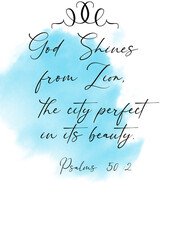 God Shines
from Zion,
the city perfect
in its beauty.
Psalms 50 2